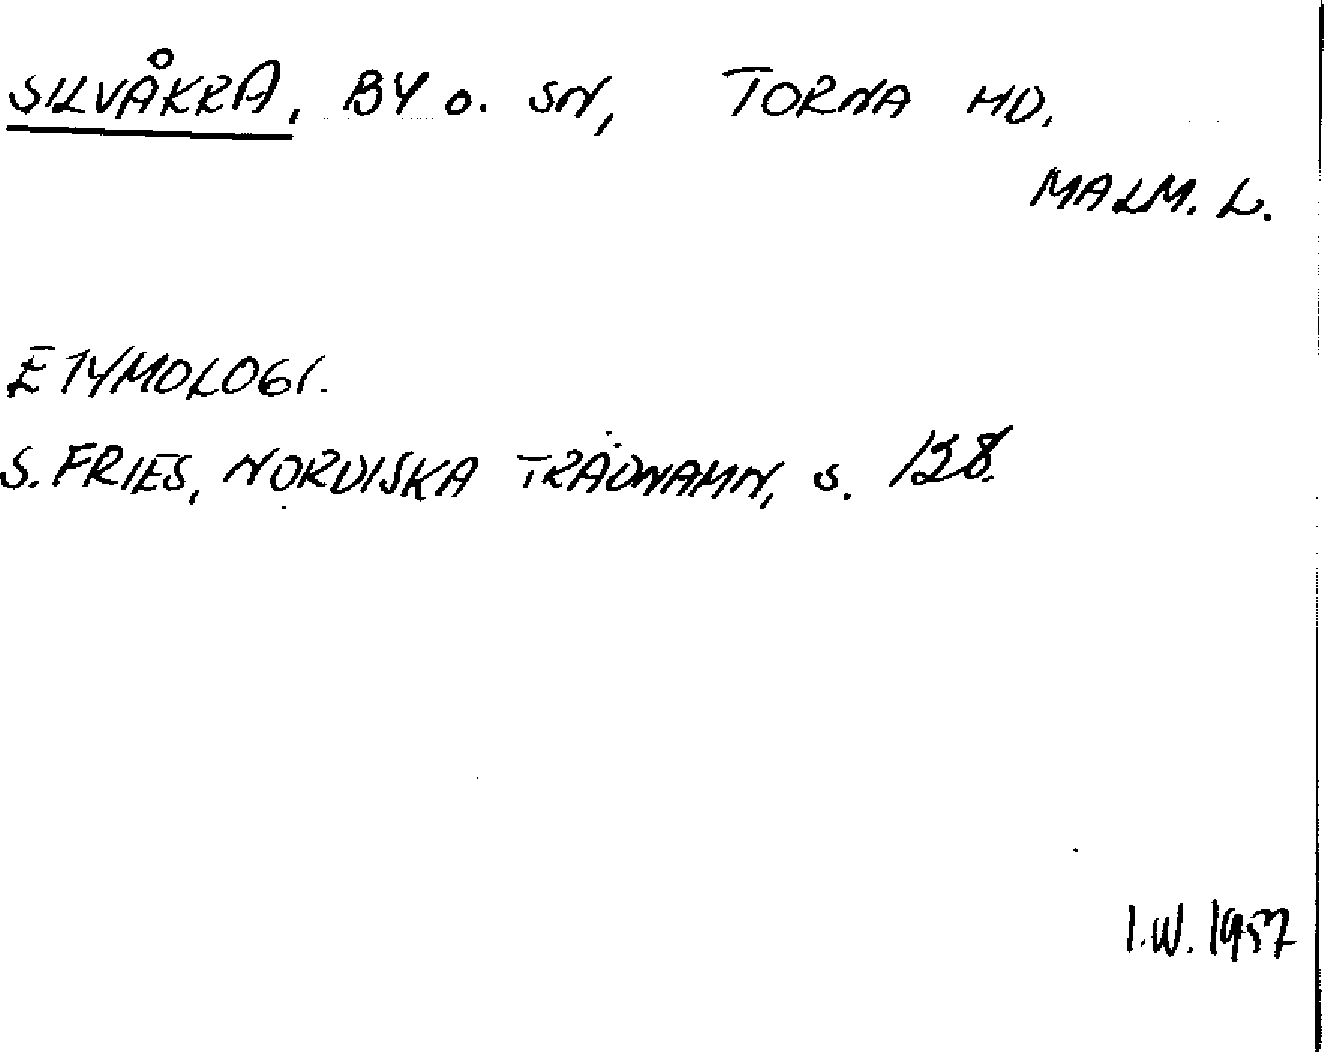 SILVÅKRA, BY o. SN, TORNA HD,
MALM. L.
ETYMOLOGI.
S. FRIES, NORDISKA TRÄDNAMN, s. 138.
I.W. 1957